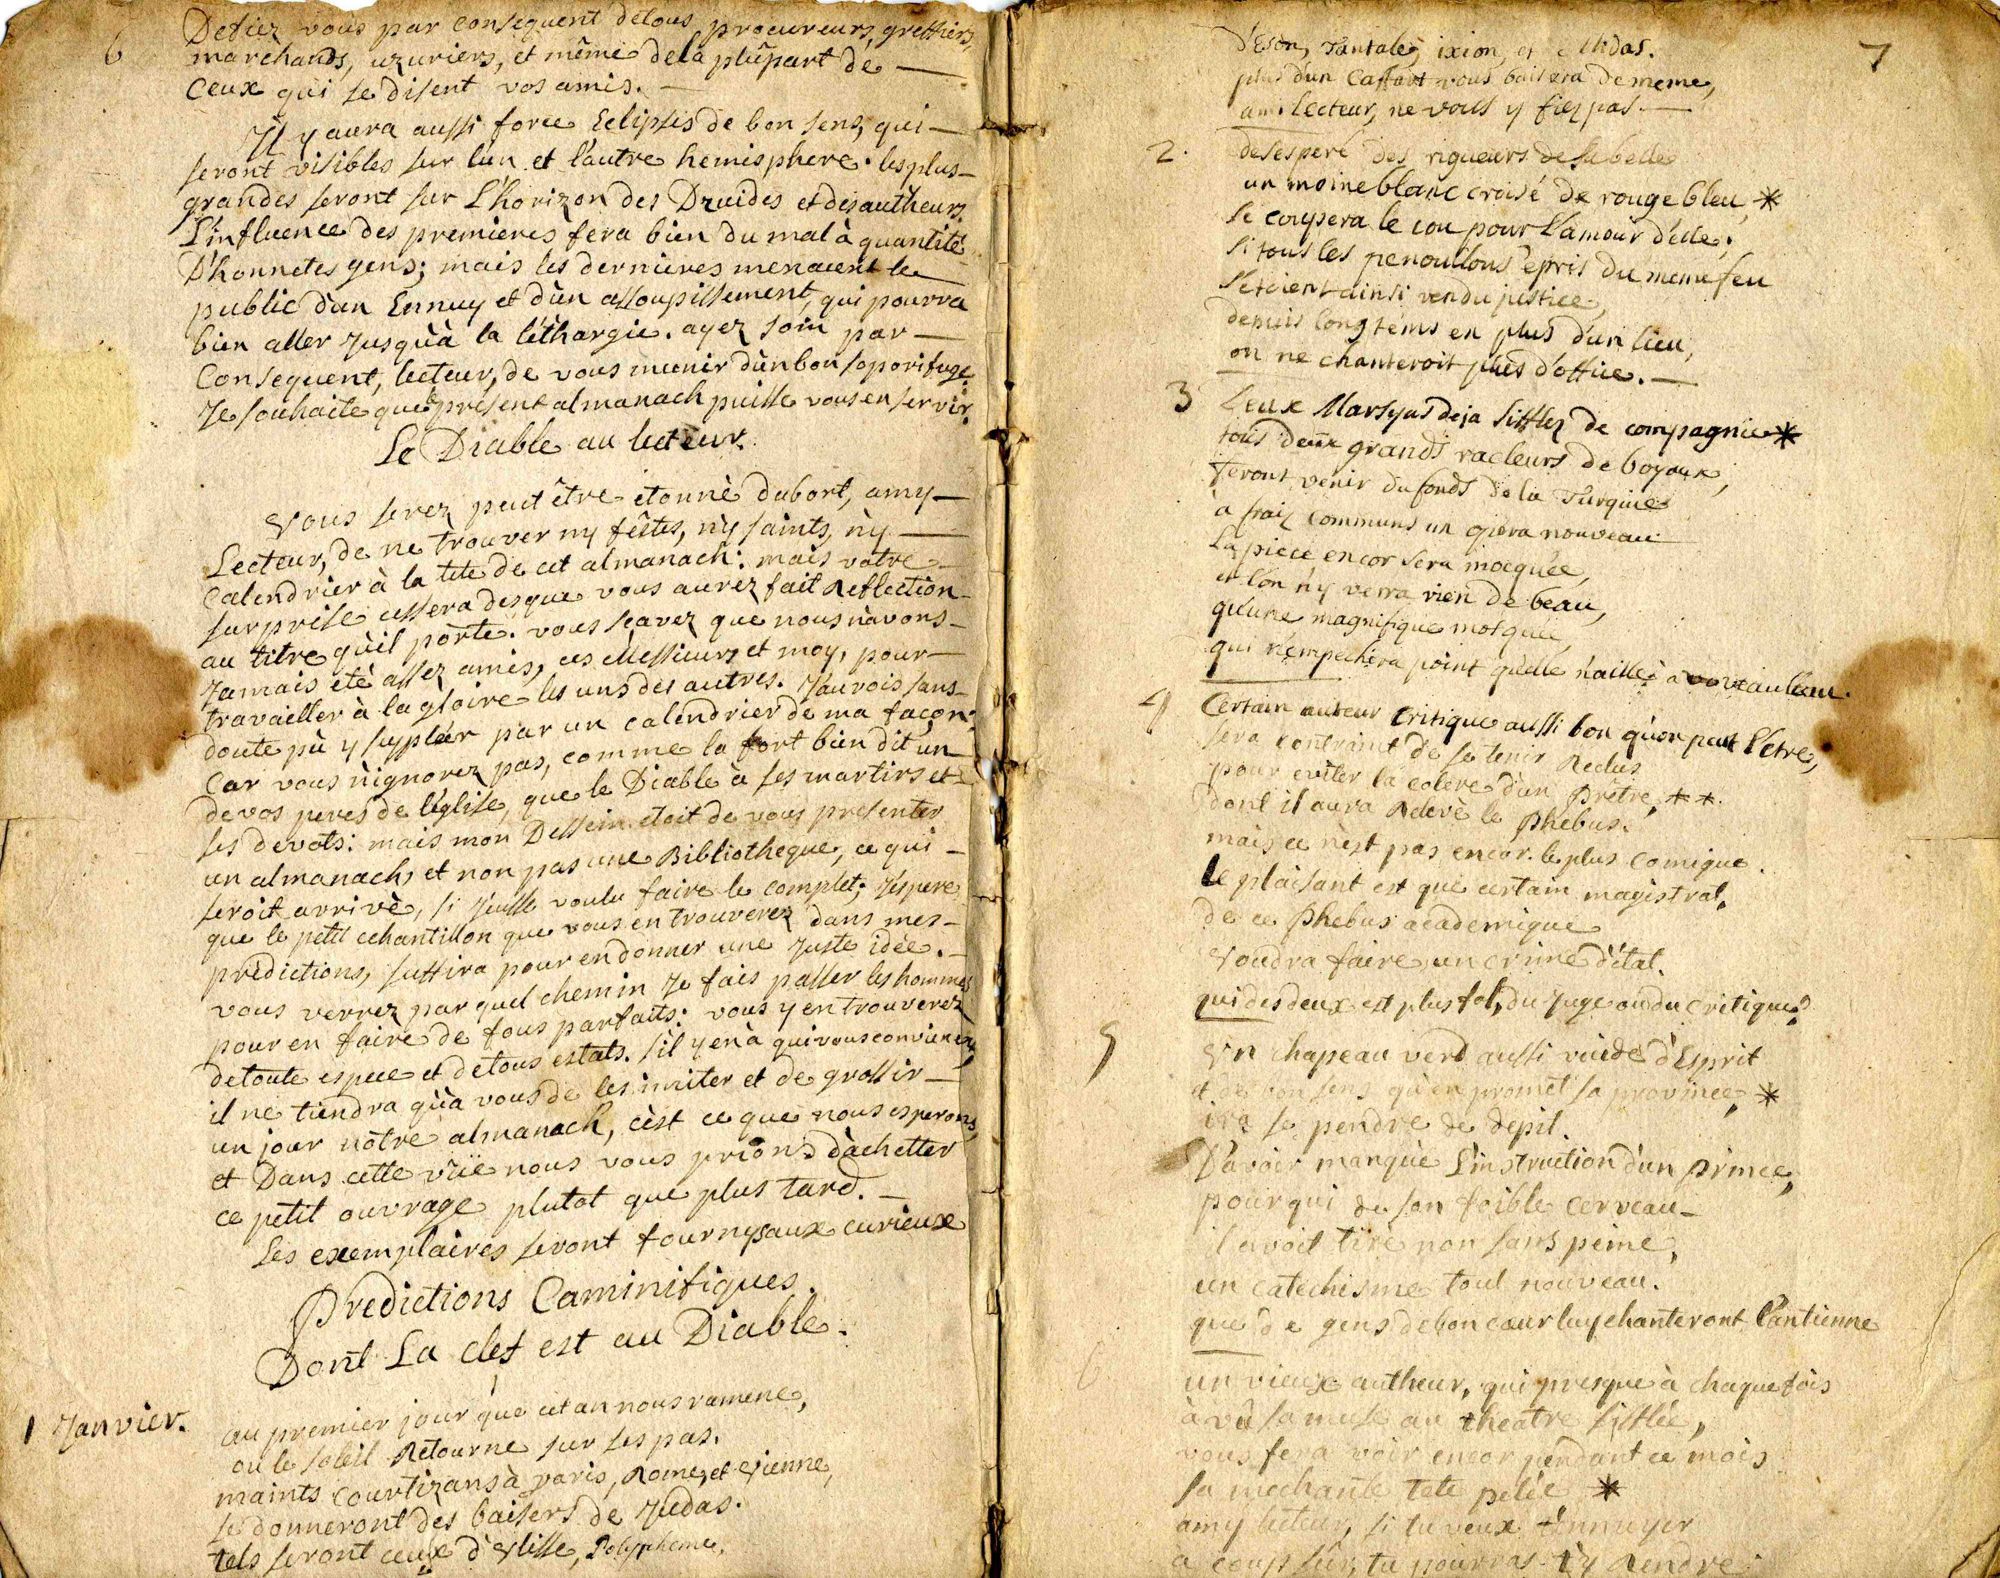 6
Defiez vous par consequent de tous procureurs, greffiers,
marchands, uzuriers, et même de la plûpart de
ceux qui se disent vos amis.
Il y aura aussi force Eclipses de bon sens, qui
seront visibles sur l'un et l'autre hemisphere. les plus
grandes seront sur L'horizon des Druides et des autheurs.
L'influence des premieres fera bien du mal à quantité
D'honnetes gens; mais les dernieres menacent le
public d'un Ennuy et d'un assoupissement, qui pourra
bien aller Jusqu'à la léthargie. ayez soin par
Consequent, lecteur, de vous munir d'un bon soporifuge.
Je souhaite que le present almanach puisse vous en servir.
Le Diable au lecteur.
Vous serez peut être étonné dabort, amy
Lecteur, de ne trouver ny fêstes, ny saints, ny
Calendrier à la tete de cet almanach: mais vôtre
surprise cessera desque vous aurez fait Reflection
au titre qu'il porte. vous sçavez que nous n'avons
Jamais été assez amis, ces Messieurs et moy, pour
travailler à la gloire les uns des autres. J'aurois sans
doute pû y supleér par un calendrier de ma façon.
Car vous n'ignorez pas, comme la fort bien dit un
de vos peres de l'église, que le Diable à ses martirs et
ses devots: mais mon Dessein etoit de vous presenter
un almanach, et non pas une Bibliotheque, ce qui
seroit arrivé, si j'eusse voulu faire le complet; J'espere
que le petit echantillon que vous en trouverez dans mes
prédictions, suffira pour en donner une Juste idée.
vous verrez par quel chemin Je fais passer les hommes
pour en faire de fous parfaits: vous y en trouverez
de toute espece et de tous estats. s'il y en à qui vous conviennent,
il ne tiendra qu'à vous de les imiter et de grossir
un jour nôtre almanach, c'est ce que nous esperons,
et Dans cette vüe nous vous prions d'achetter
ce petit ouvrage plutot que plus tard.
Les exemplaires seront fournys aux curieux
Predictions Caminifiques.
Dont La clef est au Diable.
1 Janvier.
au premier jour que cet an nous ramene,
ou le soleil Retourne sur ses pas.
maints Courtizans à paris, Rome, et vienne,
se donneront des baisers de Judas.
tels seront ceux d'Ulisse, Polypheme,
7
D'Eson, Tantale, ixion, et Midas.
plus d'un Caffart vous baisera de meme,
ami lecteur, ne vous y fiez pas.
2.
desesperé des rigueurs de sa belle
un moine blanc croisé de rouge bleu, *
se coupera le cou pour l'amour d'elle;
si tous les penoulons epris du meme feu
s'etoient ainsi rendu justice,
depuis long tems en plus d'un lieu,
on ne chanteroit plus d'office.
3
Deux Marsyas deja sifflez de compagnie *
tous deux grands racleurs de boyaux,
feront venir du fonds de la Turquie
à fraiz communs un opera nouveau
La piece encor sera mocquée,
et l'on n'y verra rien de beau,
qu'une magnifique mosquée
qui n'empechera point qu'elle n'aille à
4
Certain auteur critique aussi bon qu'on peut l'etre,
sera contraint de se tenir Reclus
pour eviter la colere d'un Prêtre, * *
dont il aura
le Phebus.
mais ce n'est pas encor le plus comique
Le plaisant est que certain magistrat,
de ce Phebus academique
voudra faire un crime d'état.
qui des deux est plus fol, du Juge ou du Critique?
5
Un chapeau verd aussi vuide d'Esprit
et de bon sens qu'en promet sa province, *
ira se pendre de depit.
D'avoir manqué L'instruction d'un Prince,
pour qui de son foible cerveau
il avoit tiré non sans peine,
un catechisme tout nouveau.
que de gens de bon cœur luy chanteront l'antienne
6
un vieux autheur, qui presque à chaque fois
à vû sa muse au theatre sifflée,
vous fera voir encor pendant ce mois
sa mechante tete pelée *
amy lecteur, si tu veux t'ennuyer
a coup sûr, tu pourras t'y Rendre.